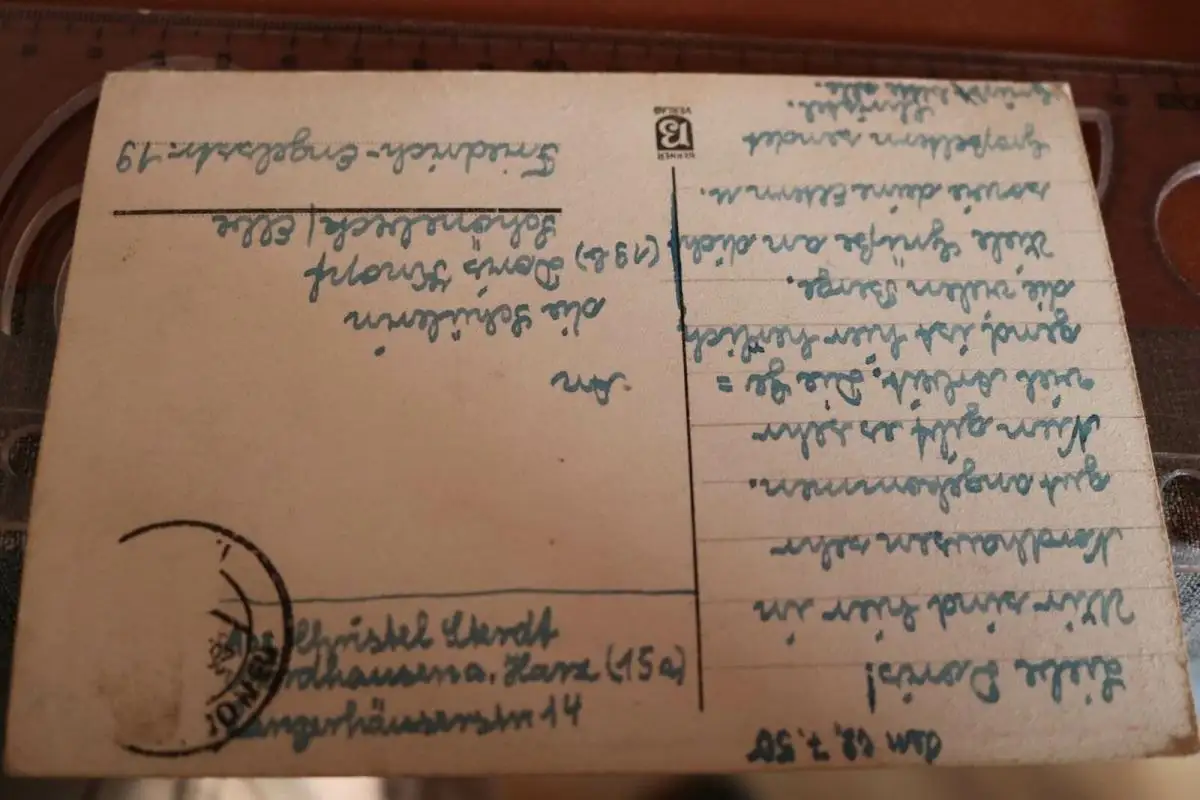 den 7.50
Liebe Doris!
Wir sind hier in
Nordhausen sehr
gut angekommen.
Nun gibt es sehr
viel Arbeit. Die Ge =
gend ist hier herlich
die vielen Berge.
Viele Grüße an dich
sowie deine Eltern u.
Großeltern sendet
Christel.
Grüßt bitte alle.
14
Christel
Nordhausen a. Harz (15a)
An
die Schülerin
Doris Knopf
(19b) Schönebeck/Elbe
Friedrich-Engelsstr. 19
BERNER
B
VERLAG